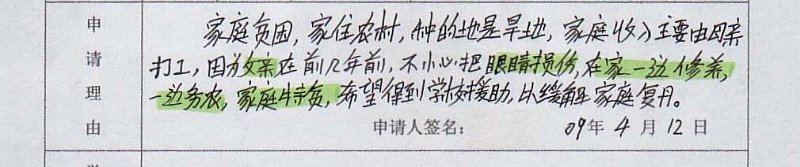 申请理由
家庭贫困，家住农村，种的地是旱地，家庭收入主要由母亲
打工，因为父亲在前几年前，不小心把眼睛损伤，在家一边修养，
一边务农，家庭特贫，希望得到学校援助，以缓解家庭复丹。
申请人签名： 09年4月12日